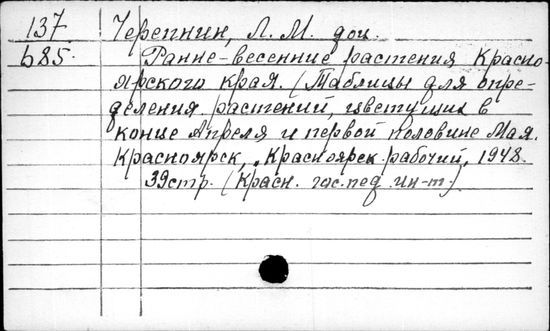 137 Черепнин, Л. М. доц.
b85. Ранне-весенние растения Красно-
ярского края. (Таблицы для опре-
деления растений, цветущих в
конце Апреля и первой половине Мая.
Красноярск, „Красноярск. рабочий, 1948.
39стр. (Красн. гос. пед. ин-т.)